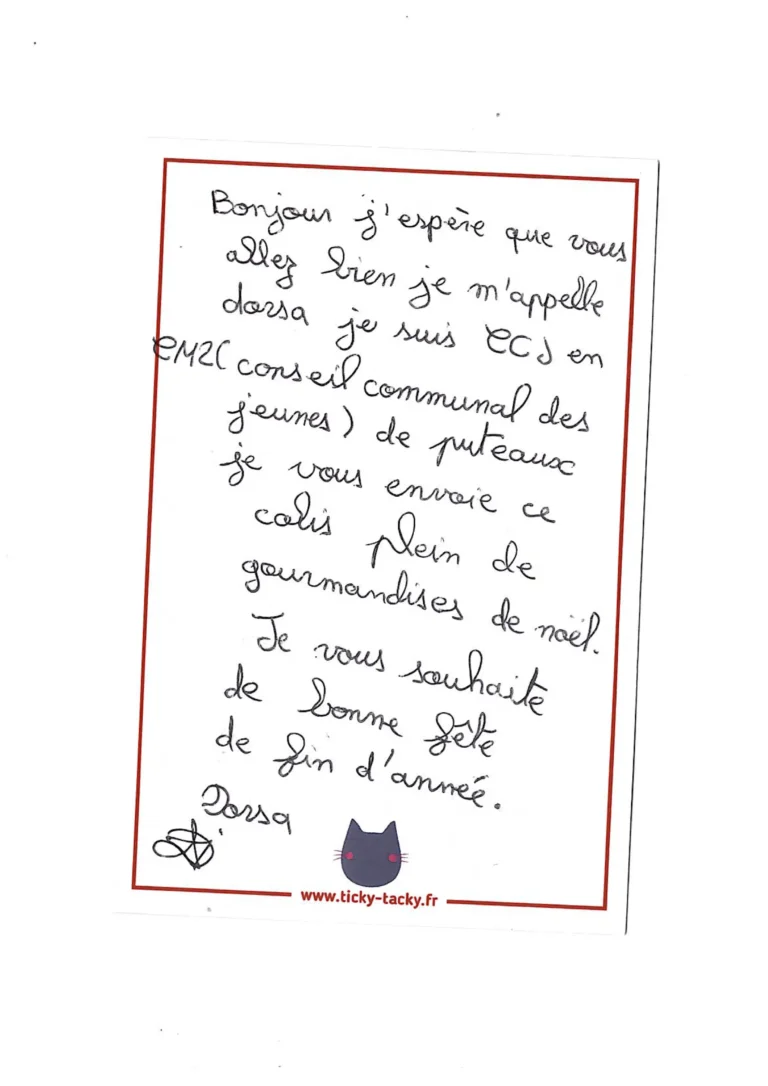 Bonjour j'espère que vous
allez bien je m'appelle
dorsa je suis CCJ en
CM2( conseil communal des
jeunes) de puteaux
je vous envoie ce
colis plein de
gourmandises de noël.
Je vous souhaite
de bonne fête
de fin d'année.
Dorsa
www.ticky-tacky.fr